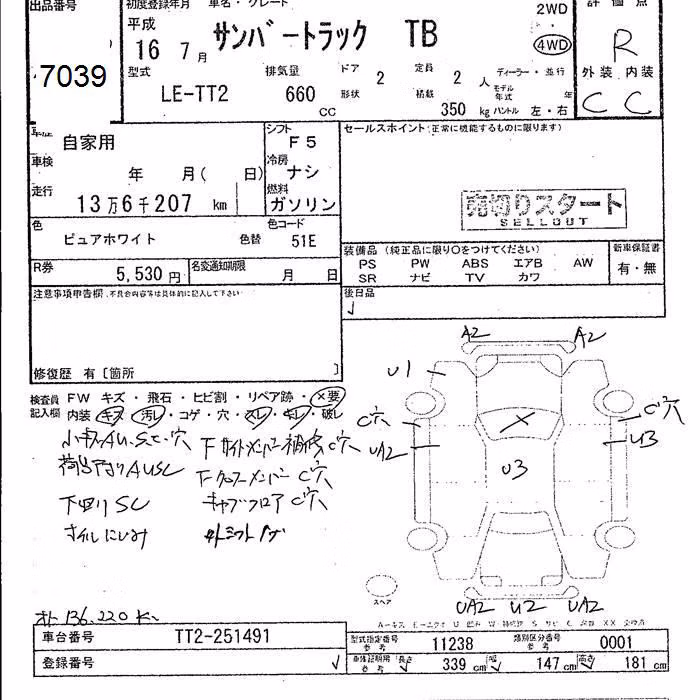 出品番号
初度登録年月 車名・グレード
評価点
平成
16 7月 サンバートラック TB
2WD
4WD
R
7039
型式 排気量 ドア 2 定員 2 人 ディーラー・並行
外装 内装
形状 積載 モデル年式 年
LE-TT2 660 cc 350 kg ハンドル 左・右
C C
車歴 自家用
シフト F5
セールスポイント(正常に機能するものに限ります)
車検 年 月( 日)
冷房 ナシ
走行 13万6千207 km
燃料 ガソリン
売切りスタート
SELLOUT
色 ピュアホワイト 色替
色コード 51E
装備品(純正品に限り○をつけてください)
新車保証書
PS PW ABS エアB AW
SR ナビ TV カワ
有・無
R券 5,530円
名変通知期限 月 日
後日品
注意事項申告欄.不具合内容等は具体的に記入して下さい
修復歴 有〔箇所 〕
検査員 FW キズ・飛石・ヒビ割・リペア跡・×要
記入欄 内装 キズ・汚レ・コゲ・穴・スレ・キレ・破レ
小キズAU.S.C.穴 Fサイドメンバー補修C穴
荷台下廻りAUSC Fクロスメンバー C穴
下回りSC キャブフロアC穴
オイルにじみ
オド 136,220 km
A2 A2
U1
C穴 C穴
UA2 U3
U3
スペア
UA2 U2 UA2
車台番号 TT2-251491
登録番号
型式指定番号 参考 11238 類別区分番号 参考 0001
車検証明用 参考 長さ 339 cm 幅 147 cm 高さ 181 cm